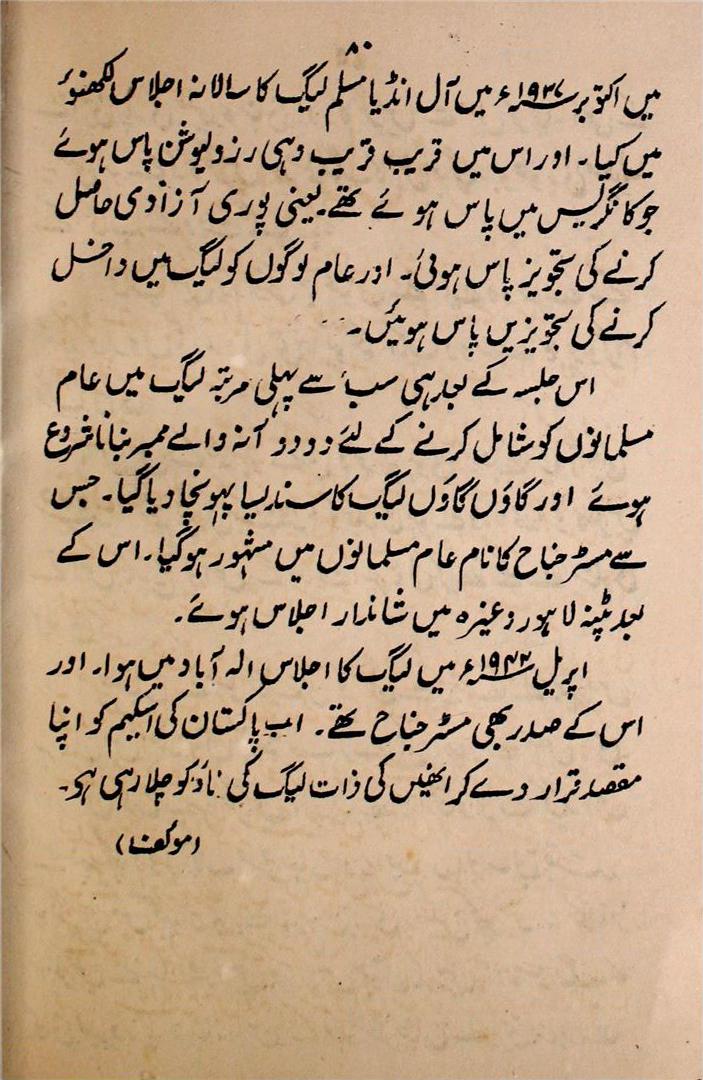 ۸۰
میں اکتوبر ۱۹۳۷ء میں آل انڈیا مسلم لیگ کا سالانہ اجلاس لکھنوئ
میں کیا۔ اور اس میں قریب قریب وہی رزولیوشن پاس ہوئے
جو کانگرلیس میں پاس ہوئے تھے۔ یعنی پوری آزادی حاصل
کرنے کی تجویز پاس ہوئی۔ اور عام لوگوں کو لیگ میں داخل
کرنے کی تجویزیں پاس ہوئیں۔
اس جلسہ کے بعد ہی سب سے پہلی مرتبہ لیگ میں عام
مسلمانوں کو شامل کرنے کے لئے دو دو آنہ والے ممبر بنانا شروع
ہوئے اور گاؤں گاؤں لیگ کا سندیسا پہونچا دیا گیا۔ جس
سے مسٹر جناح کا نام عام مسلمانوں میں مشہور ہو گیا۔ اس کے
بعد پٹنہ لاہور وغیرہ میں شاندار اجلاس ہوئے۔
اپریل ۱۹۴۲ء میں لیگ کا اجلاس الہ آباد میں ہوا۔ اور
اس کے صدر بھی مسٹر جناح تھے۔ اب پاکستان کی اسکیم کو اپنا
مقصد قرار دے کر انھیں کی ذات لیگ کی ناؤ کو چلا رہی ہی۔
(مولف)